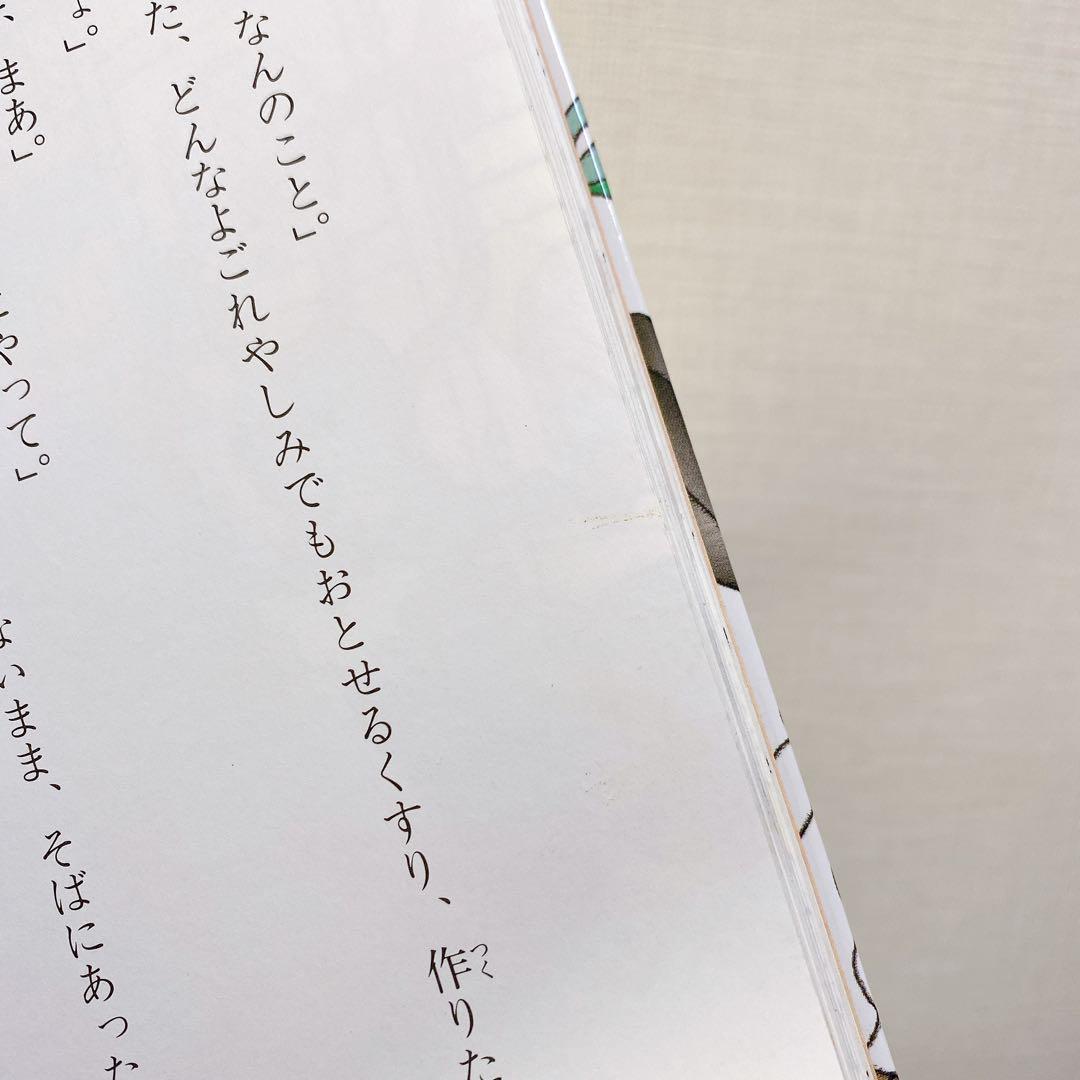 なんのこと。」
た、どんなよごれやしみでもおとせるくすり、作りた
よ。」
まあ。」
やって。」
ないまま、そばにあった